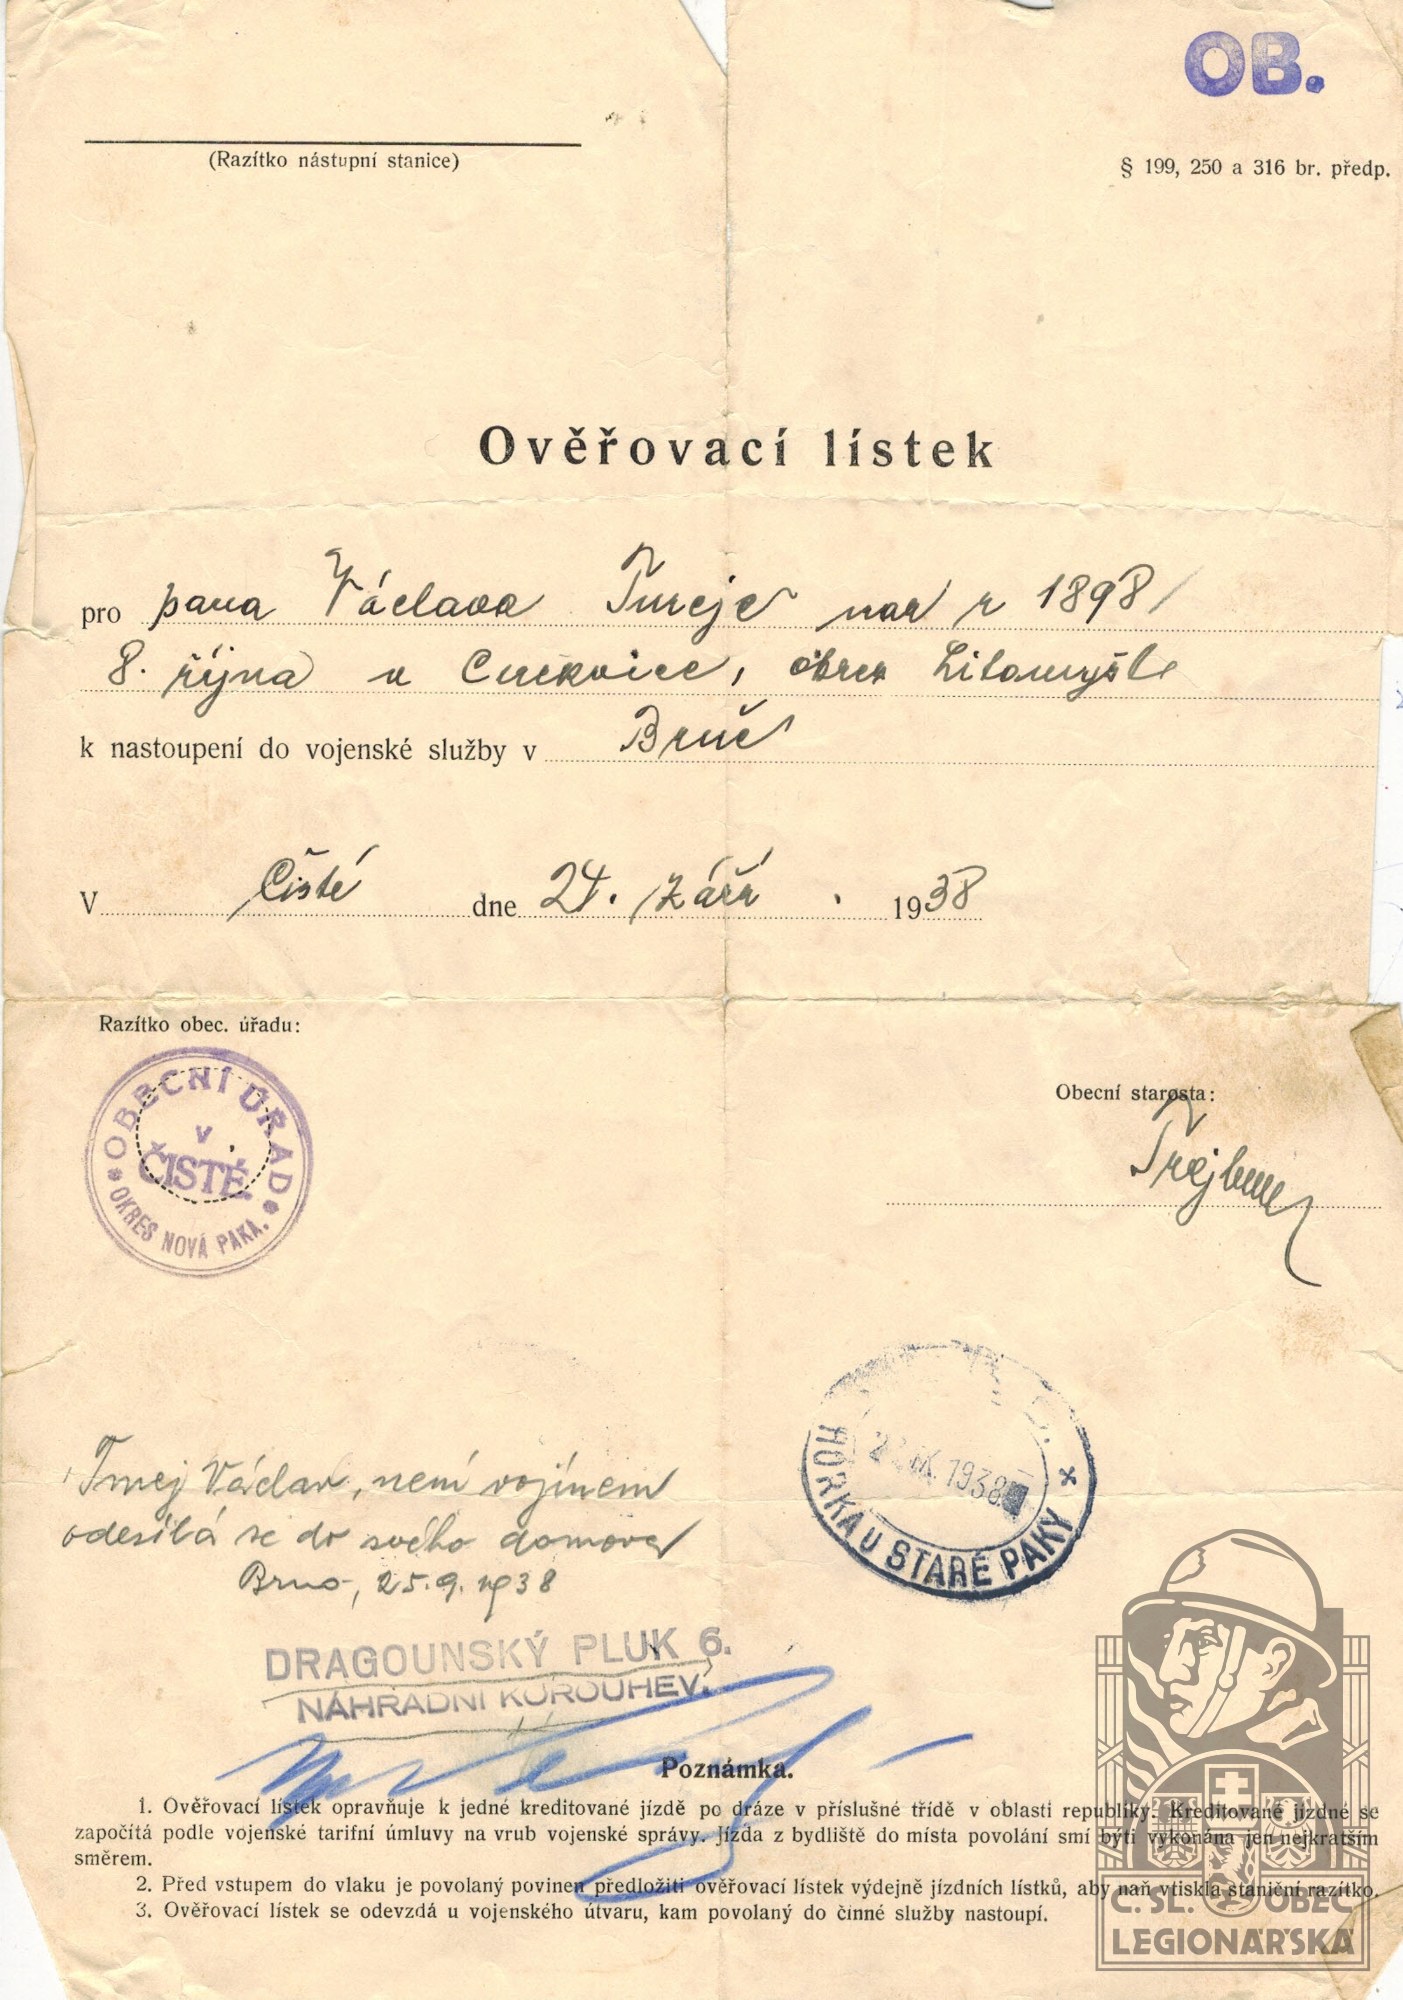 OB.
(Razítko nástupní stanice)
§ 199, 250 a 316 br. předp.
Ověřovací lístek
pro pana Václava nar r 1898
8. října v okres Litomyšl
k nastoupení do vojenské služby v Brně
V Čisté dne 24. září 1938
Razítko obec. úřadu:
OBECNÍ ÚŘAD
v
ČISTÉ.
OKRES NOVÁ PAKA.
Obecní starosta:
HORKA U STARÉ PAKY
IX. 1938
Václav, není vojínem
odesílá se do svého domova
Brno, 25.9.1938
DRAGOUNSKÝ PLUK 6.
NÁHRADNÍ KOROUHEV.
Poznámka.
1. Ověřovací lístek opravňuje k jedné kreditované jízdě po dráze v příslušné třídě v oblasti republiky. Kreditované jízdné se
započítá podle vojenské tarifní úmluvy na vrub vojenské správy. Jízda z bydliště do místa povolání smí býti vykonána jen nejkratším
směrem.
2. Před vstupem do vlaku je povolaný povinen předložiti ověřovací lístek výdejně jízdních lístků, aby naň vtiskla staniční razítko.
3. Ověřovací lístek se odevzdá u vojenského útvaru, kam povolaný do činné služby nastoupí.
Č. SL. OBEC
LEGIONÁŘSKÁ